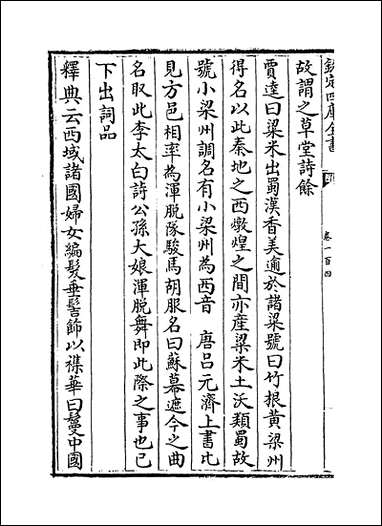 欽定四庫全書
卷一百四
故謂之草堂詩餘
賈逵曰粱米出蜀漢香美逾於諸粱號曰竹根黄梁州
得名以此秦地之西燉煌之間亦産梁米土沃類蜀故
號小梁州調名有小梁州為西音　唐吕元濟上書比
見方邑相率為渾脱隊駿馬胡服名曰蘇幕遮今之曲
名取此李太白詩公孫大娘渾脱舞即此際之事也已
下出詞品
釋典云西域諸國婦女編髮垂髻飾以襍華曰鬘中國